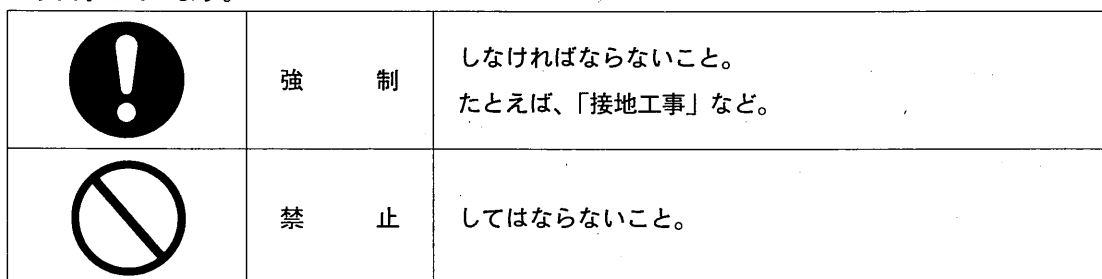 強 制
しなければならないこと。
たとえば、「接地工事」など。
禁 止
してはならないこと。